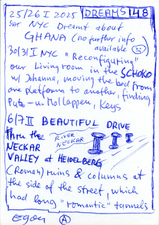 25/26 I 2025 DREAMS 148
NY Dreams about
GHANA (no further info
available)
30/31 I NYC "Reconfiguring"
our Living room in the SCHOKO
w/ Johanna, moving the bed from
one platform to another, finding
Pots – w/ Mollappen, Keys
6/7 II BEAUTIFUL DRIVE
thru the RIVER NECKAR
NECKAR
VALLEY at HEIDELBERG
(Roman) ruins & columns at
the side of the street, which
had long "romantic" tunnels